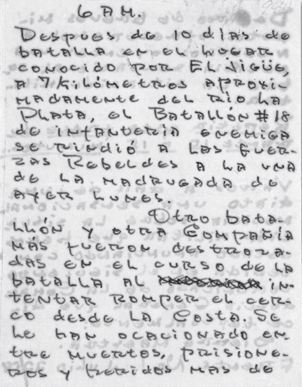 6 AM.
Despues de 10 días de
batalla en el lugar
conocido por El Jigüe,
a 7 kilómetros aproxi-
madamente del Rio La
Plata, el Batallón #18
de infantería enemiga
se rindió a las fuer-
zas Rebeldes a la una
de la madrugada de
ayer lunes.
Otro bata-
llón y otra Compañia
más fueron destroza-
das en el curso de la
batalla al in-
tentar romper el cer-
co desde la Costa. Se
le han ocacionado en
tre muertos, prisione-
ros y heridos mas de